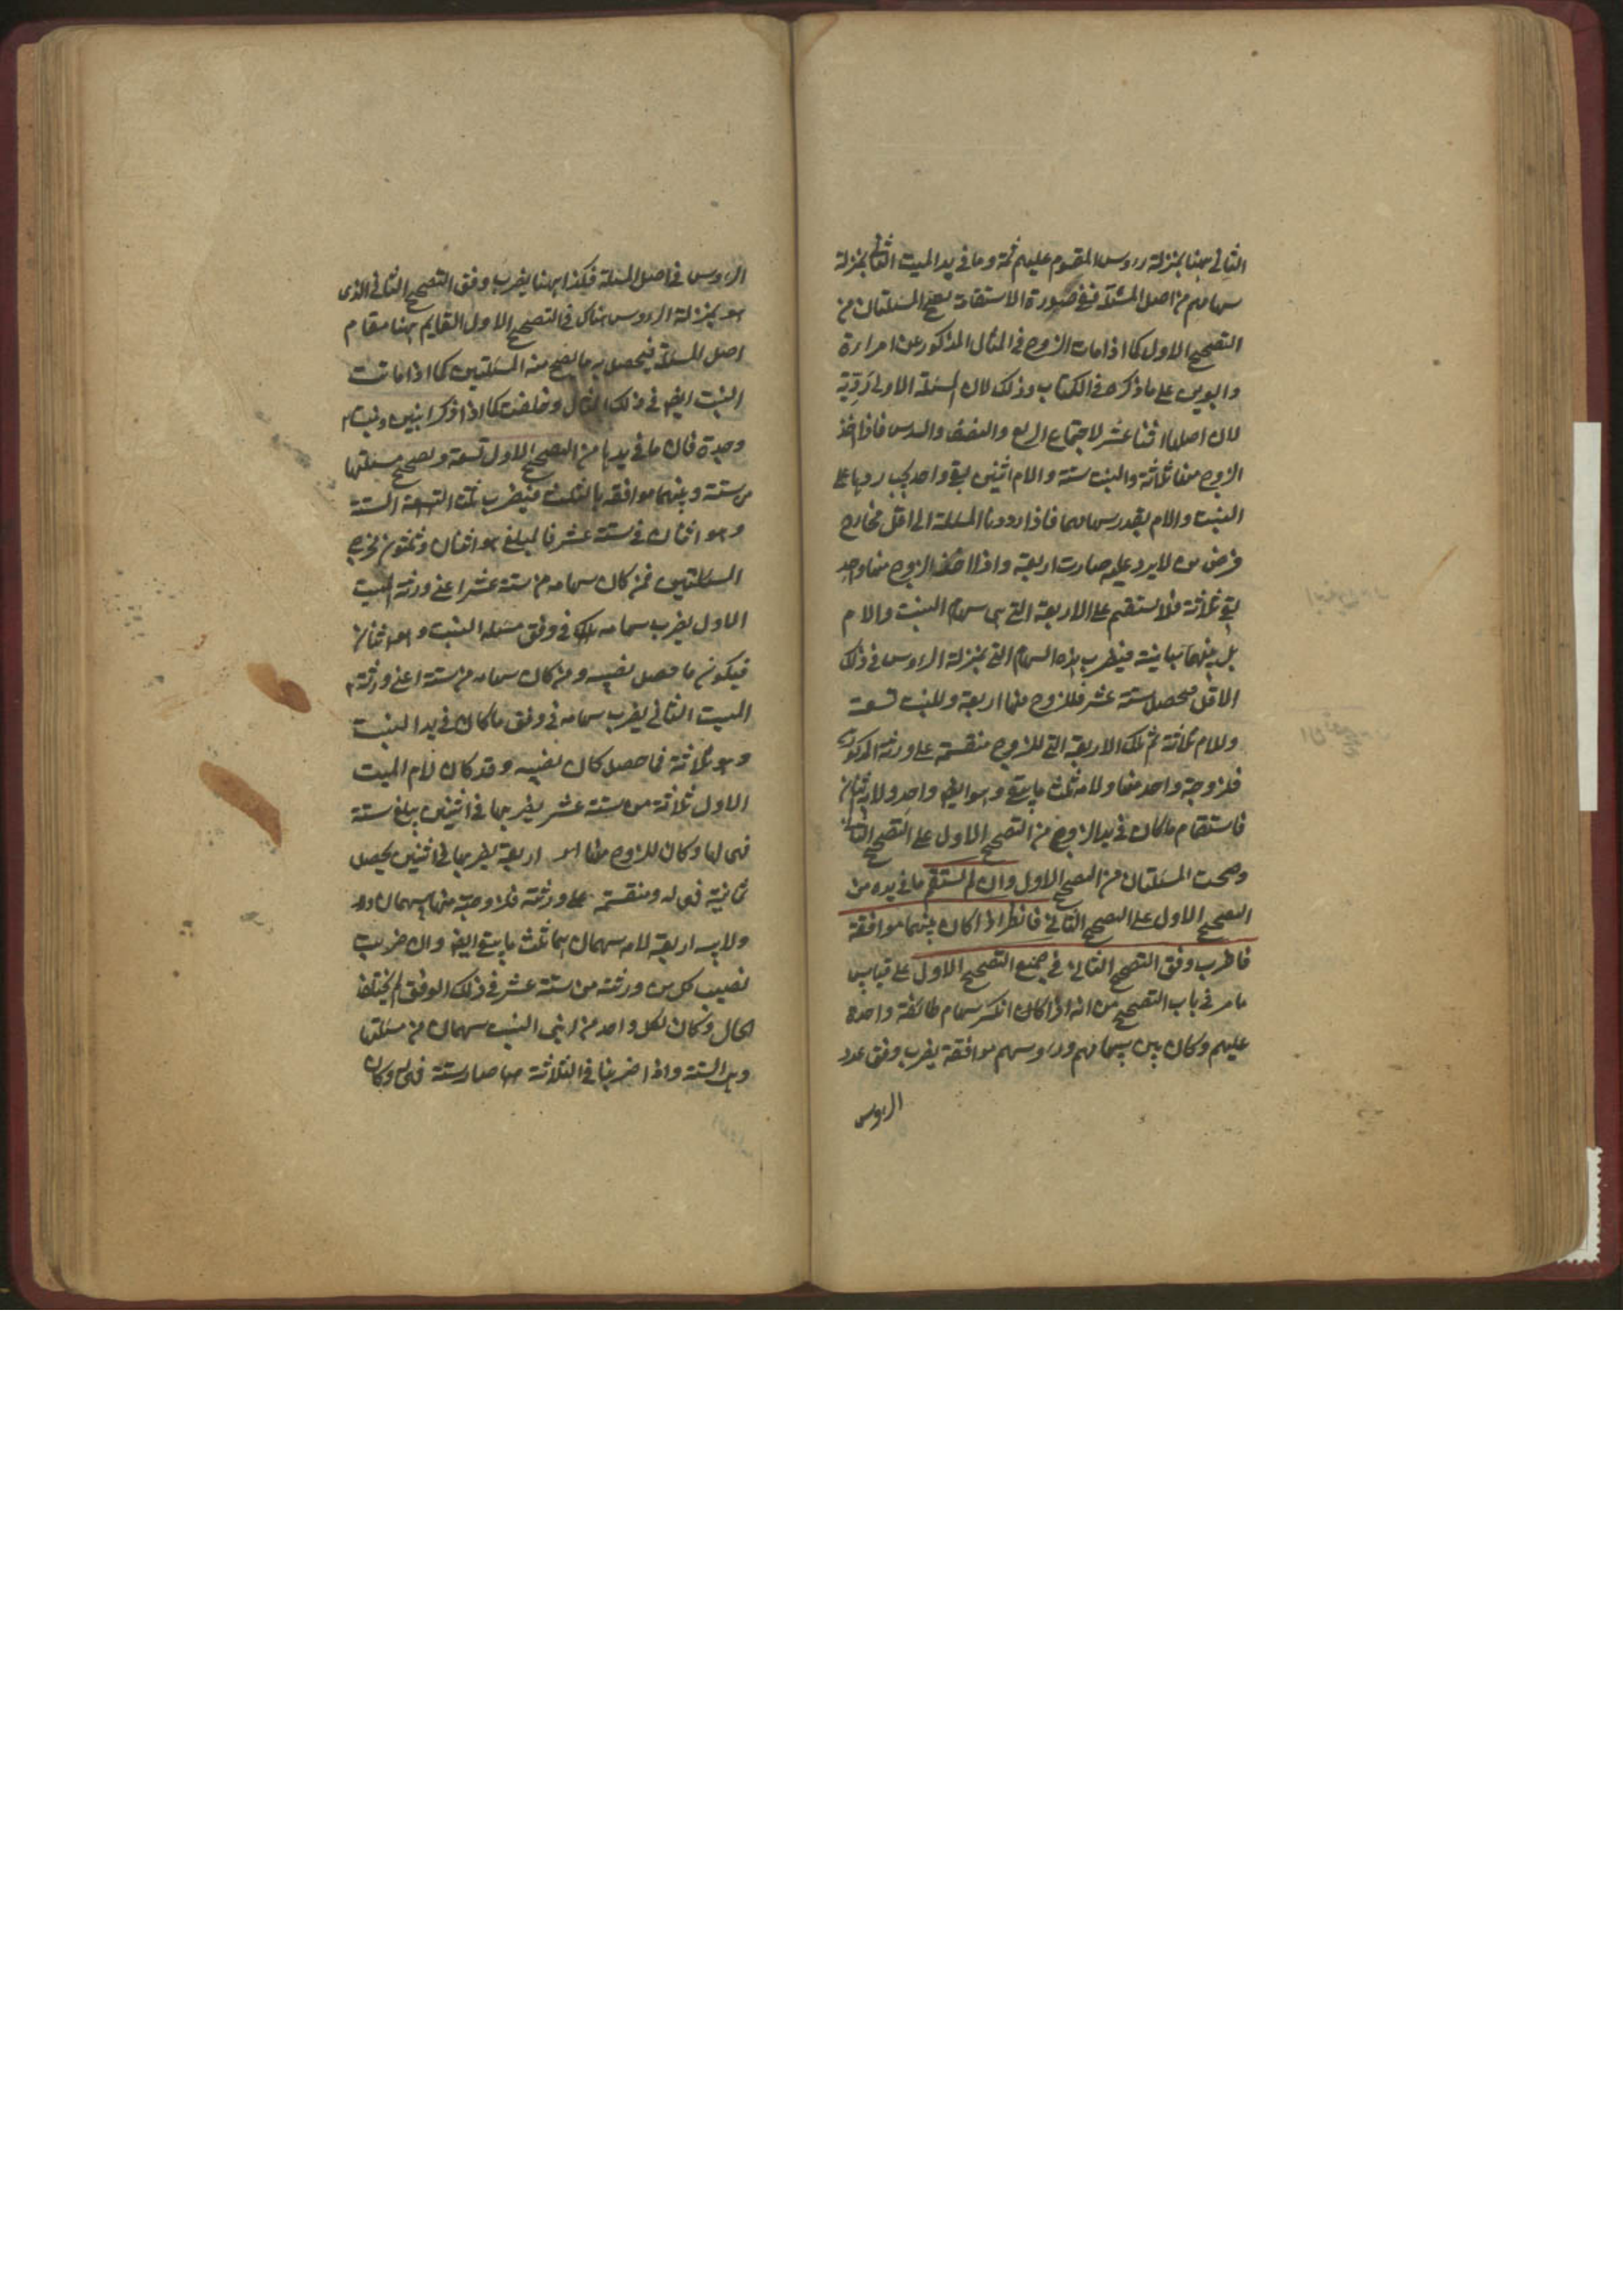 الثاني ههنا بمنزلة رؤس المقسوم عليهم ثمة وما في يد الميت الثاني بمنزلة
سهامهم من اصل المسئلة ففي صورة الاستقامة يصح المسئلتان من
التصحيح الاول كما اذا مات الزوج في المثال المذكور عن امراءة
وابوين على ما ذكره في الكتاب وذلك لان المسئلة الاولى ردية
لان اصلها اثنا عشر لاجتماع الربع والنصف والسدس فاذا اخذ
الزوج منها ثلاثة والبنت ستة والام اثنين بقي واحد يجب ردها على
البنت والام بقدر سهامهما فاذا رددنا المسئلة الى اقل مخارج
فرض من لا يرد عليه صارت اربعة واذا اخذ الزوج منها واحد
بقي ثلاثة فلا يستقيم على الاربعة التي هي سهام البنت والام
بل بينهما مباينة فيضرب هذه السهام التي بمنزلة الرؤس في ذلك
الاقل فحصل ستة عشر فللزوج منها اربعة وللبنت تسعة
وللام ثلاثة ثم تلك الاربعة التي للزوج منقسمة على ورثته المذكورين
فلزوجته واحد منها ولامه ثلث ما يبقى وهو ايضا واحد ولابيه اثنان
فاستقام ما كان في يد الزوج من التصحيح الاول على التصحيح الثاني
وصحت المسئلتان من التصحيح الاول وان لم يستقم ما في يده من
التصحيح الاول على التصحيح الثاني فانظر اذا كان بينهما موافقة
فاضرب وفق التصحيح الثاني في جميع التصحيح الاول على قياس
ما مر في باب التصحيح من انه اذا كان انكسر سهام طائفة واحدة
عليهم وكان بين سهامهم ورؤسهم موافقة يضرب وفق عدد
الرؤس
الرؤس في اصل المسئلة فهكذا ههنا يضرب وفق التصحيح الثاني الذى
هو بمنزلة الرؤس هناك في التصحيح الاول القايم ههنا مقام
اصل المسئلة فيحصل به ما يصح منه المسئلتين كما اذا ماتت
البنت ايضا في ذلك المثال وخلفت كما اذا ذكر ابنين وبنتا
وجدة فان ما في يدها من التصحيح الاول تسعة وتصحيح مسئلتها
من ستة وبينهما موافقة بالثلث فيضرب ثلث الستة
وهو اثنان في ستة عشر فالمبلغ هو اثنان وثلثون مخرج
المسئلتين فمن كان سهامه من ستة عشر اعني ورثة الميت
الاول يضرب سهامه تلك في وفق مسئلة البنت وهو اثنان
فيكون ما حصل نصيبه ومن كان سهامه من ستة اعني ورثة
الميت الثاني يضرب سهامه في وفق ما كان في يد البنت
وهو ثلاثة فما حصل كان نصيبه وقد كان لام الميت
الاول ثلاثة من ستة عشر يضربها في اثنين يبلغ ستة
فهي لها وكان للزوج منها اربعة يضربها في اثنين يحصل
ثمانية فهي له ومنقسمة على ورثته فلزوجته منها سهمان
ولابيه اربعة لامه سهمان هما ثلث ما يبقى ايضا وان ضربت
نصيب كل من ورثته من ستة عشر في ذلك الوفق لم يختلف
الحال وكان لكل واحد من ابني البنت سهمان من مسئلتها
وهي الستة واذا ضربنا في الثلاثة صارستة فهي له وكان